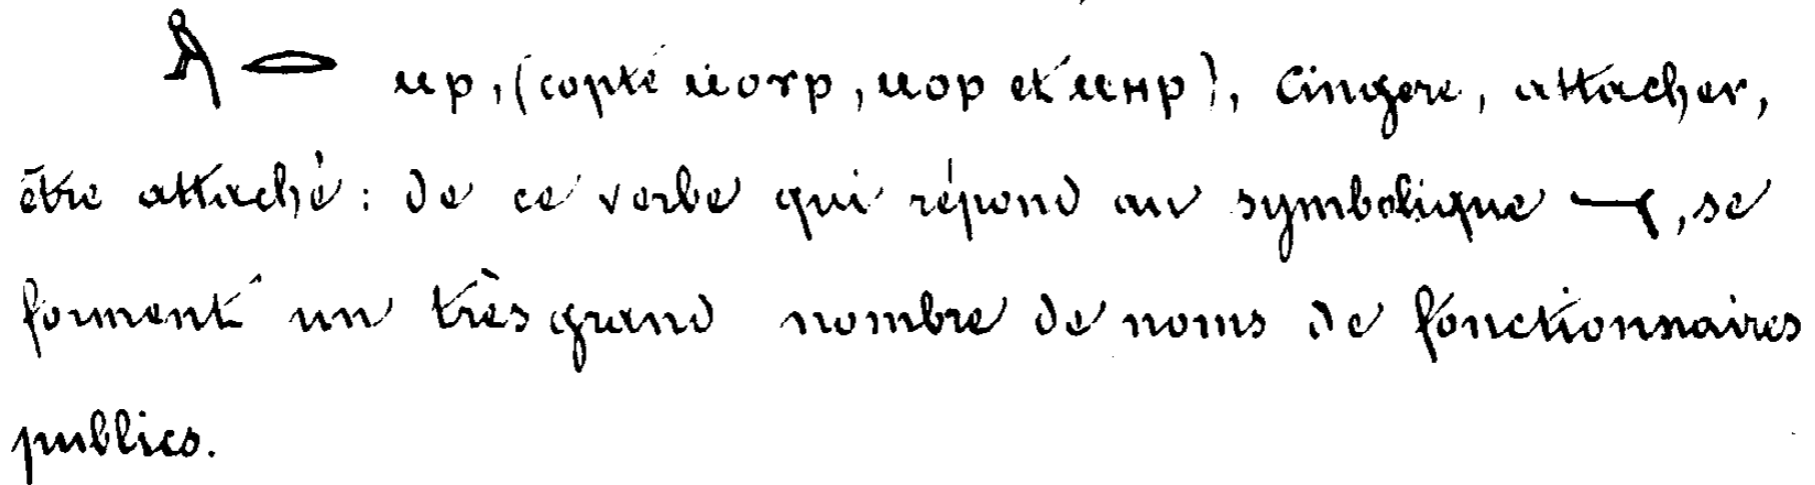 𓌳𓂋 ⲙⲣ, (copte ⲙⲟⲩⲣ, ⲙⲟⲣ et ⲙⲏⲣ), Cingere, attacher,
être attaché: de ce verbe qui répond au symbolique, se
forment un très grand nombre de noms de fonctionnaires
publics.